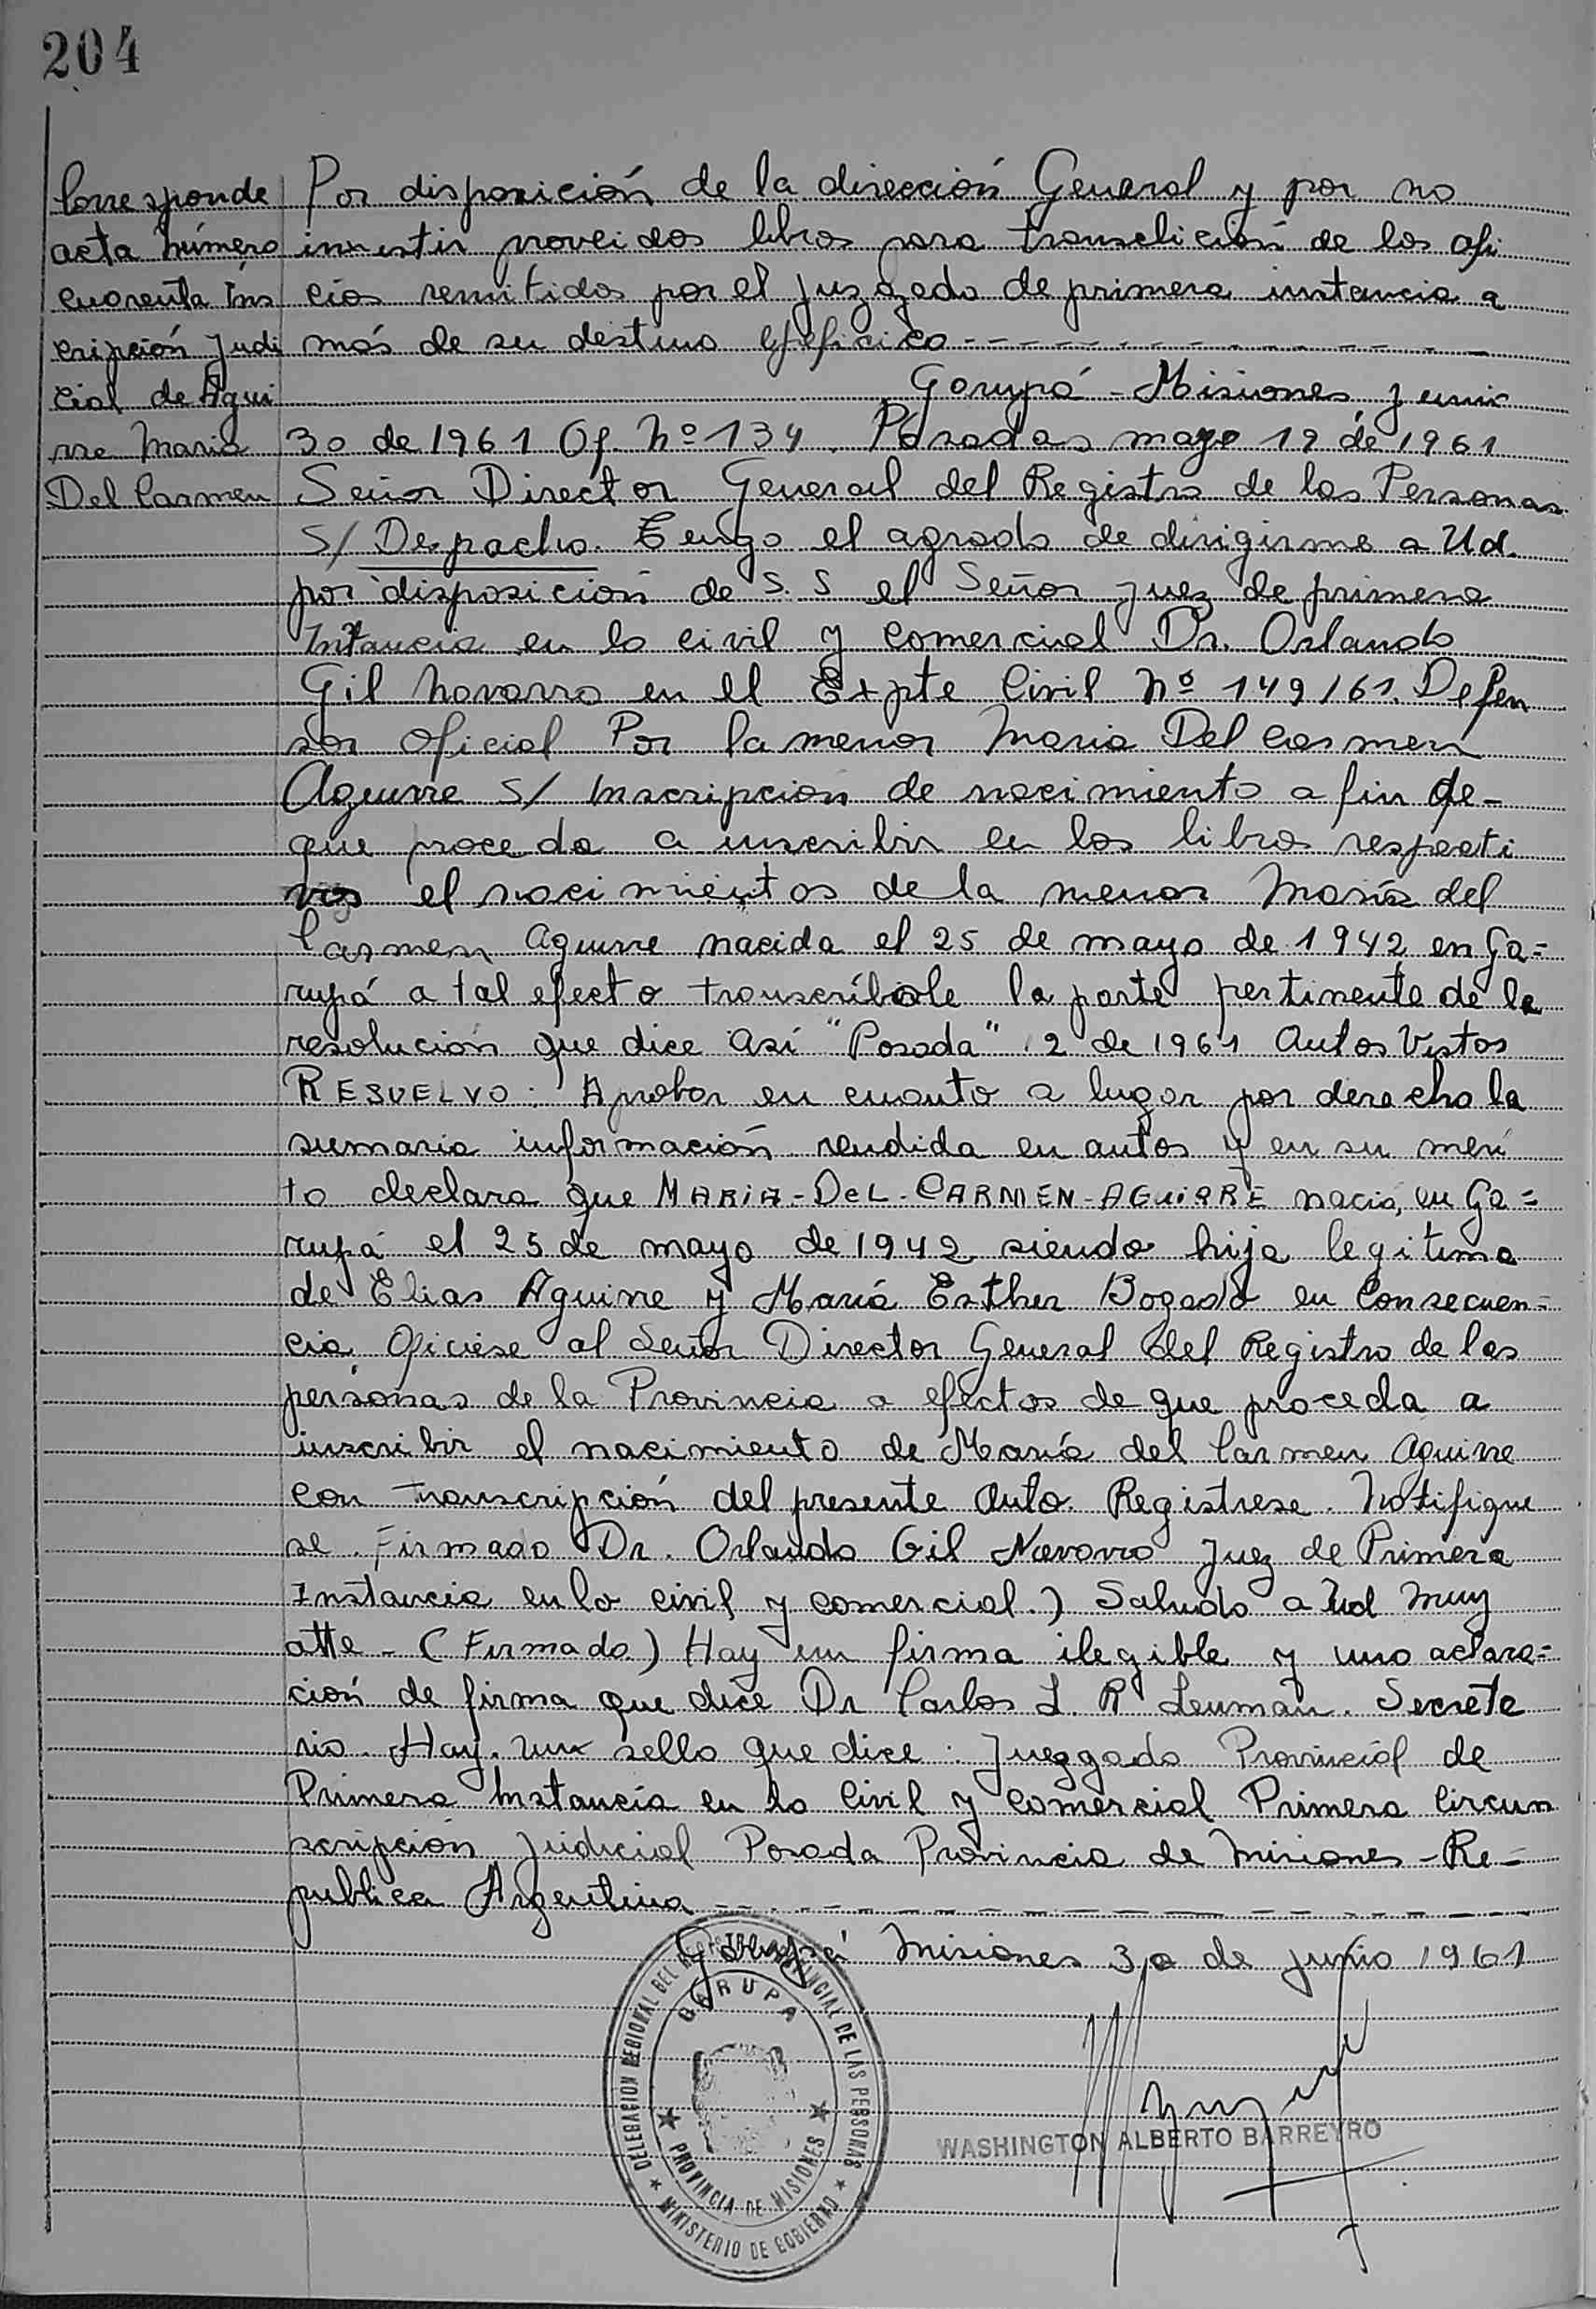 204
Corresponde
acta número
cuarenta Ins
cripción Judi
cial de Agui
rre Maria
Del Carmen
Por disposición de la dirección General y por no
proveidos libros para de los ofi
cios remitidos por el juzgado de primera instancia a
más de su destino
Garupá - Misiones, Junio
30 de 1961 Of. Nº 134. Posadas mayo 19 de 1961
Señor Director General del Registro de las Personas
S/ Despacho. Tengo el agrado de dirigirme a Ud.
por disposición de S. S el Señor Juez de primera
Intancia en lo civil y comercial Dr. Orlando
Gil Navarro en el Expte Civil Nº 149/61. Defen
sor Oficial Por la menor Maria Del Carmen
Aguirre S/ Inscripción de nacimiento a fin de-
que proceda a inscribir en los libros respecti
vos el nacimientos de la menor María del
Carmen Aguirre nacida el 25 de mayo de 1942 en Ga=
rupá a tal efecto transcríbole la parte pertinente de la
resolución que dice así "Posada" 2 de 1961 Autos Vistos
RESUELVO: Aprobar en cuanto a lugar por derecho la
sumaria información rendida en autos y en su meri
to declara que MARIA-DEL-CARMEN-AGUIRRE nació, en Ga=
rupá el 25 de mayo de 1942 siendo hija legitima
de Elias Aguirre y María Esther Bogado en Consecuen=
cia, Oficiese al Señor Director General del Registro de las
personas de la Provincia a efectos de que proceda a
inscribir el nacimiento de María del Carmen Aguirre
con transcripción del presente Auto. Registrese. Notifique
se. Firmado Dr. Orlando Gil Navarro Juez de Primera
Instancia en lo civil y comercial.) Saludo a Ud muy
atte - (Firmado) Hay un firma ilegible y una aclara=
ción de firma que dice Dr Carlos L. R Leuman. Secreta
rio. Hay. un sello que dice: Juzgado Provincial de
Primera Instancia en lo Civil y Comercial Primera Circun
scripción Judicial Posada Provincia de Misiones - Re-
publica Argentina
Garupá Misiones 30 de junio 1961
DELEGACION REGIONAL DEL REGISTRO PROVINCIAL DE LAS PERSONAS
GARUPA
PROVINCIA DE MISIONES
MINISTERIO DE GOBIERNO
WASHINGTON ALBERTO BARREYRO